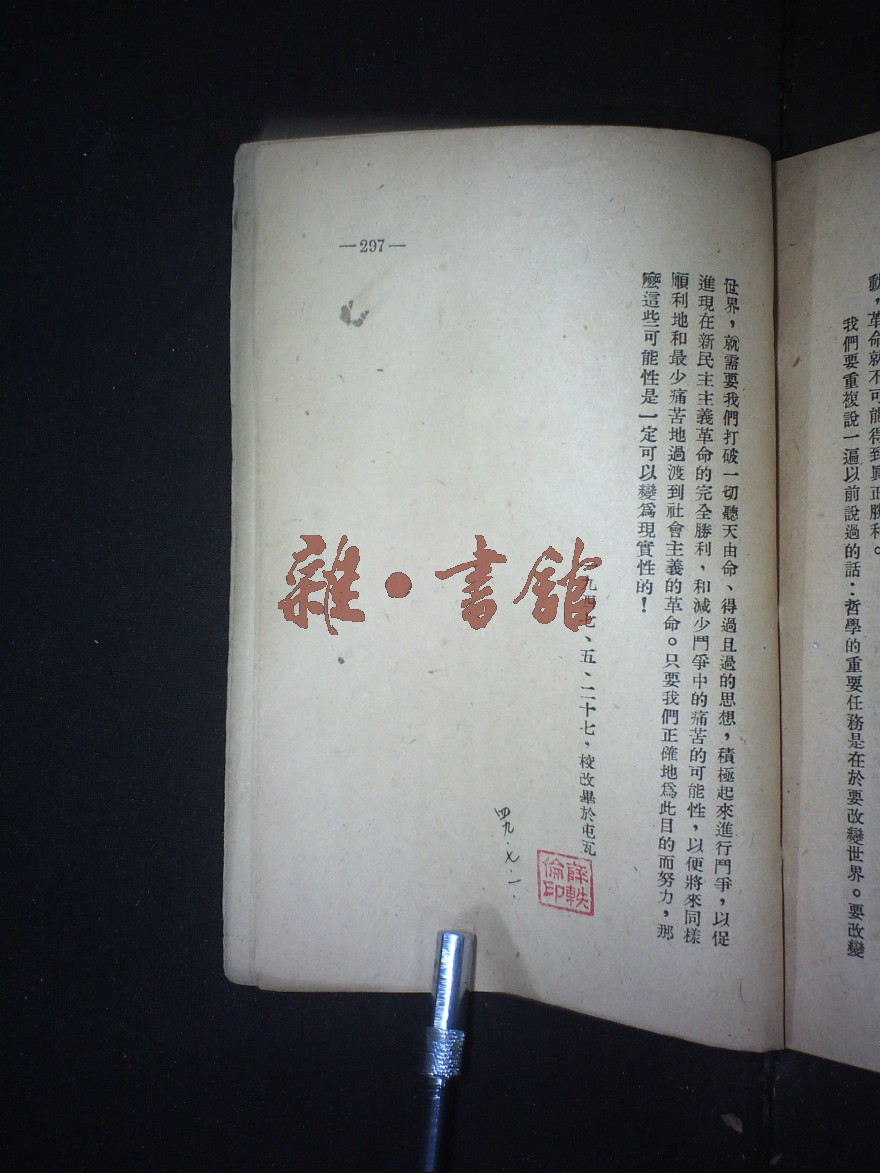 動，革命就不可能得到真正勝利。
我們要重複說一遍以前說過的話：哲學的重要任務是在於要改變世界。要改變
世界，就需要我們打破一切聽天由命、得過且過的思想，積極起來進行鬥爭，以促
進現在新民主主義革命的完全勝利，和減少鬥爭中的痛苦的可能性，以便將來同樣
順利地和最少痛苦地過渡到社會主義的革命。只要我們正確地爲此目的而努力，那
麼這些可能性是一定可以變爲現實性的！
九四七、五、二十七，校改畢於屯瓦
四九．七．一．
薛軼倫印
—297—
雜•書館